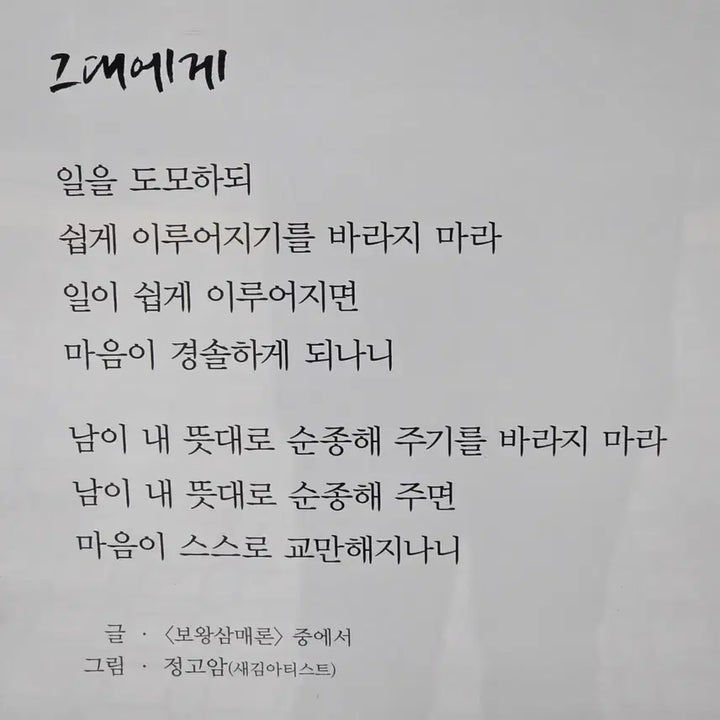 그대에게
일을 도모하되
쉽게 이루어지기를 바라지 마라
일이 쉽게 이루어지면
마음이 경솔하게 되나니
남이 내 뜻대로 순종해 주기를 바라지 마라
남이 내 뜻대로 순종해 주면
마음이 스스로 교만해지나니
글 · 〈보왕삼매론〉 중에서
그림 · 정고암(새김아티스트)